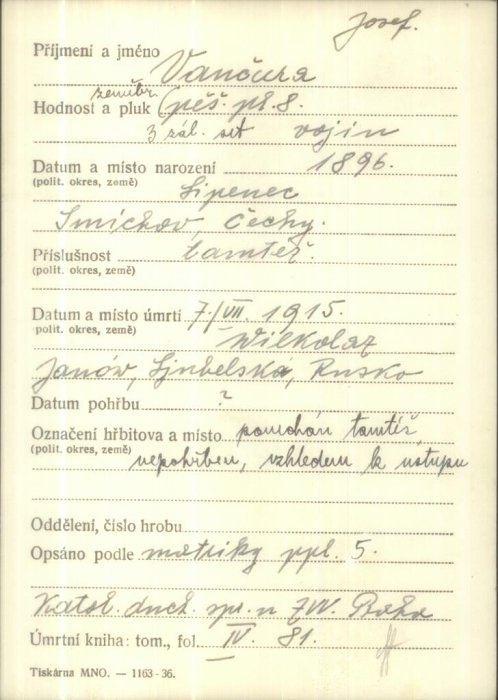 Josef.
Příjmení a jméno Vančura
zeměbr.
Hodnost a pluk (pěš. pl. 8.
3 zál. set vojín
Datum a místo narození 1896.
(polit. okres, země) Lipenec
Smíchov, Čechy.
Příslušnost tamtéž.
(polit. okres, země)
Datum a místo úmrtí 7./VII. 1915.
polit. okres, země) Wilkolaz
Janów, Ljubelská, Rusko
Datum pohřbu ?
Označení hřbitova a místo ponechán tamtéž,
(polit. okres, země) nepohřben, vzhledem k ústupu
Oddělení, číslo hrobu
Opsáno podle matriky ppl. 5.
Katol. duch. spr. u ZV. Praha
Úmrtní kniha: tom., fol. IV. 81.
Tiskárna MNO. — 1163-36.